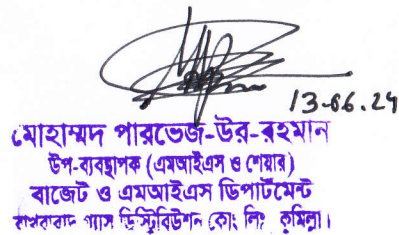 13-06.24
মোহাম্মদ পারভেজ-উর-রহমান
উপ-ব্যবস্থাপক (এমআইএস ও শেয়ার)
বাজেট ও এমআইএস ডিপার্টমেন্ট
বাখরাবাদ গ্যাস ডিস্ট্রিবিউশন কোং লিঃ কুমিল্লা।